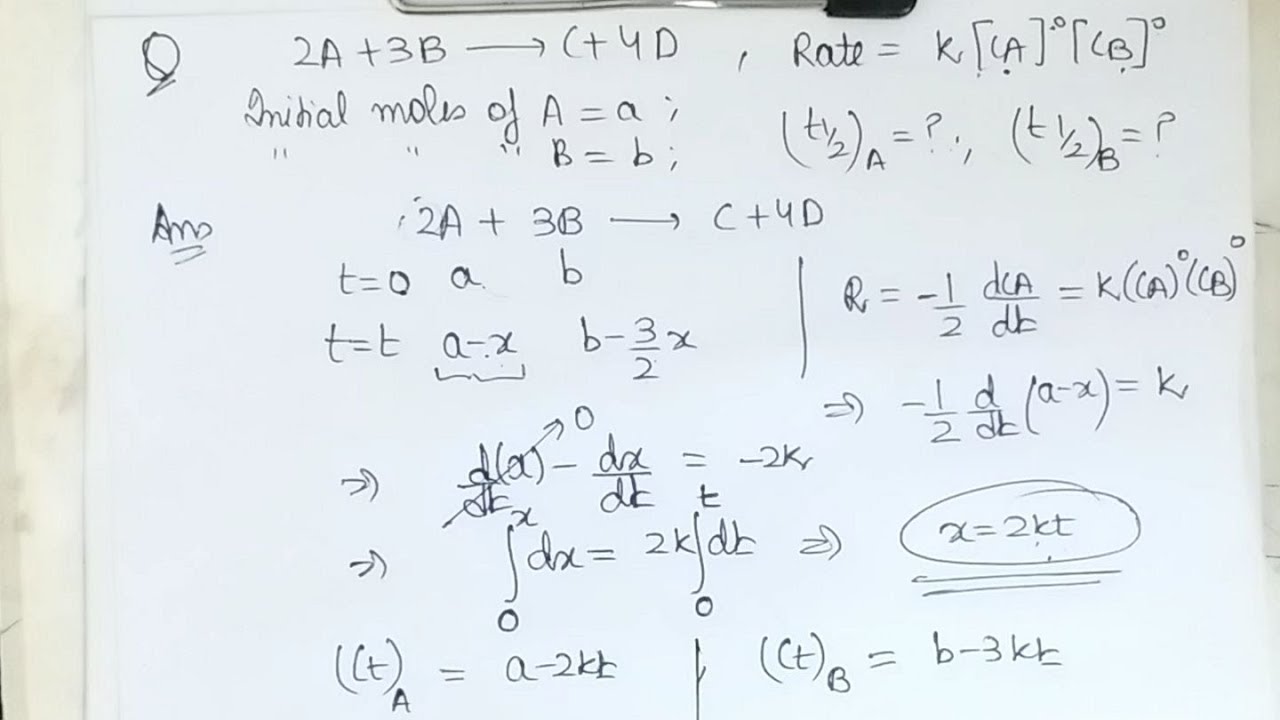 Q 2A + 3B ⟶ C + 4D , Rate = K [CA]⁰ [CB]⁰
Initial moles of A = a ;
" " " B = b ; (t½)A = ? , (t½)B = ?
Ans 2A + 3B ⟶ C + 4D
t=0 a b
t=t a-x b-3/2 x
R = -1/2 dCA/dt = K(CA)⁰(CB)⁰
⇒ -1/2 d/dt (a-x) = K
⇒ d(a)/dt → 0 - dx/dt = -2K
⇒ ∫₀ˣ dx = 2K ∫₀ᵗ dt ⇒ x = 2kt
(Ct)A = a-2kt | (Ct)B = b-3kt